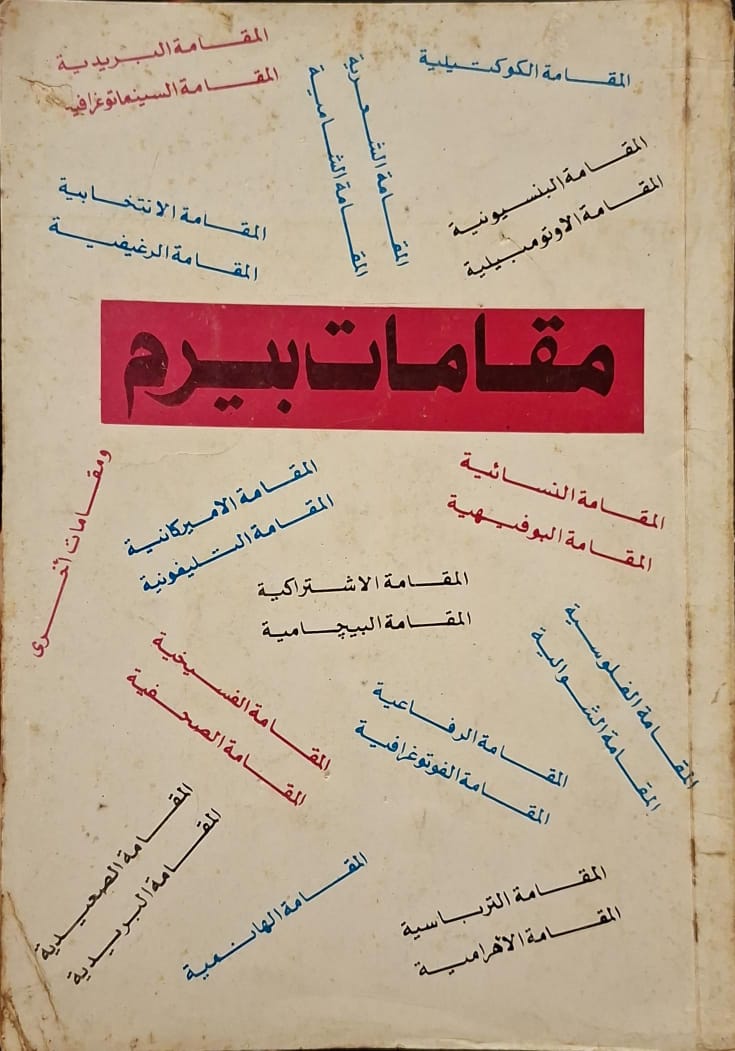 المقامة البريدية
المقامة السينماتوغرافية
المقامة الشعرية
المقامة الشامية
المقامة الكوكتيلية
المقامة البنسيونية
المقامة الاوتومبيلية
المقامة الانتخابية
المقامة الرغيفية
مقامات بيرم
المقامة النسائية
المقامة البوفيهية
المقامة الاميركانية
المقامة التليفونية
ومقامات أخرى
المقامة الاشتراكية
المقامة البيجامية
المقامة الفلوسية
المقامة الشوالية
المقامة الفسيخية
المقامة الصحفية
المقامة الرفاعية
المقامة الفوتوغرافية
المقامة الصعيدية
المقامة البريدية
المقامة الهانمية
المقامة الترباسية
المقامة الأهرامية